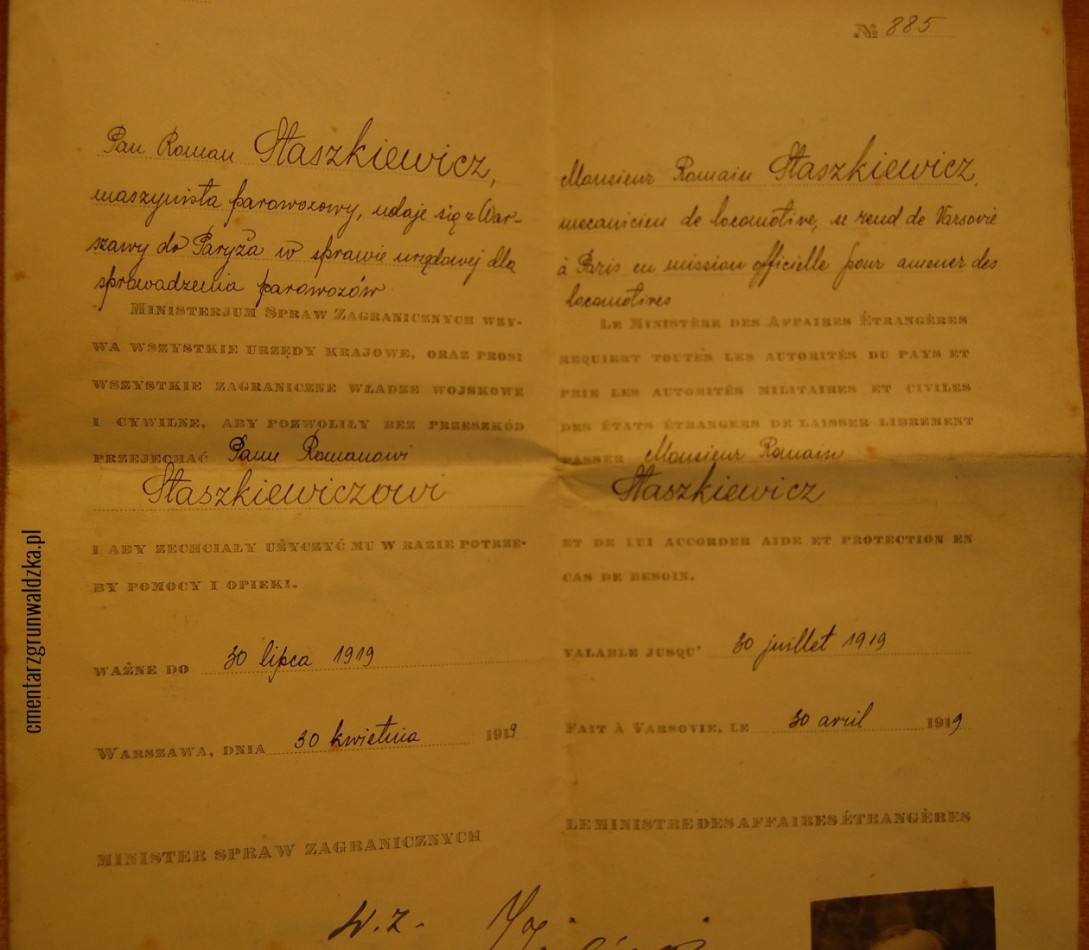 № 885
Pan Roman Staszkiewicz,
maszynista parowozowy, udaje się z War-
szawy do Paryża w sprawie urzędowej dla
sprowadzenia parowozów
MINISTERJUM SPRAW ZAGRANICZNYCH WZY-
WA WSZYSTKIE URZĘDY KRAJOWE, ORAZ PROSI
WSZYSTKIE ZAGRANICZNE WŁADZE WOJSKOWE
I CYWILNE, ABY POZWOLIŁY BEZ PRZESZKÓD
PRZEJECHAĆ Panu Romanowi
Staszkiewiczowi
I ABY ZECHCIAŁY UŻYCZYĆ MU W RAZIE POTRZE-
BY POMOCY I OPIEKI.
WAŻNE DO 30 lipca 1919
WARSZAWA, DNIA 30 kwietnia 1919
MINISTER SPRAW ZAGRANICZNYCH
Monsieur Romain Staszkiewicz,
mecanicien de locomotive, se rend de Varsovie
à Paris en mission officielle pour amener des
locomotives
LE MINISTÈRE DES AFFAIRES ÉTRANGÈRES
REQUIERT TOUTES LES AUTORITÉS DU PAYS ET
PRIE LES AUTORITÉS MILITAIRES ET CIVILES
DES ÉTATS ÉTRANGERS DE LAISSER LIBREMENT
PASSER Monsieur Romain
Staszkiewicz
ET DE LUI ACCORDER AIDE ET PROTECTION EN
CAS DE BESOIN.
VALABLE JUSQU' 30 juillet 1919
FAIT À VARSOVIE, LE 30 avril 1919
LE MINISTRE DES AFFAIRES ÉTRANGÈRES
W. z.
cmentarzgrunwaldzka.pl